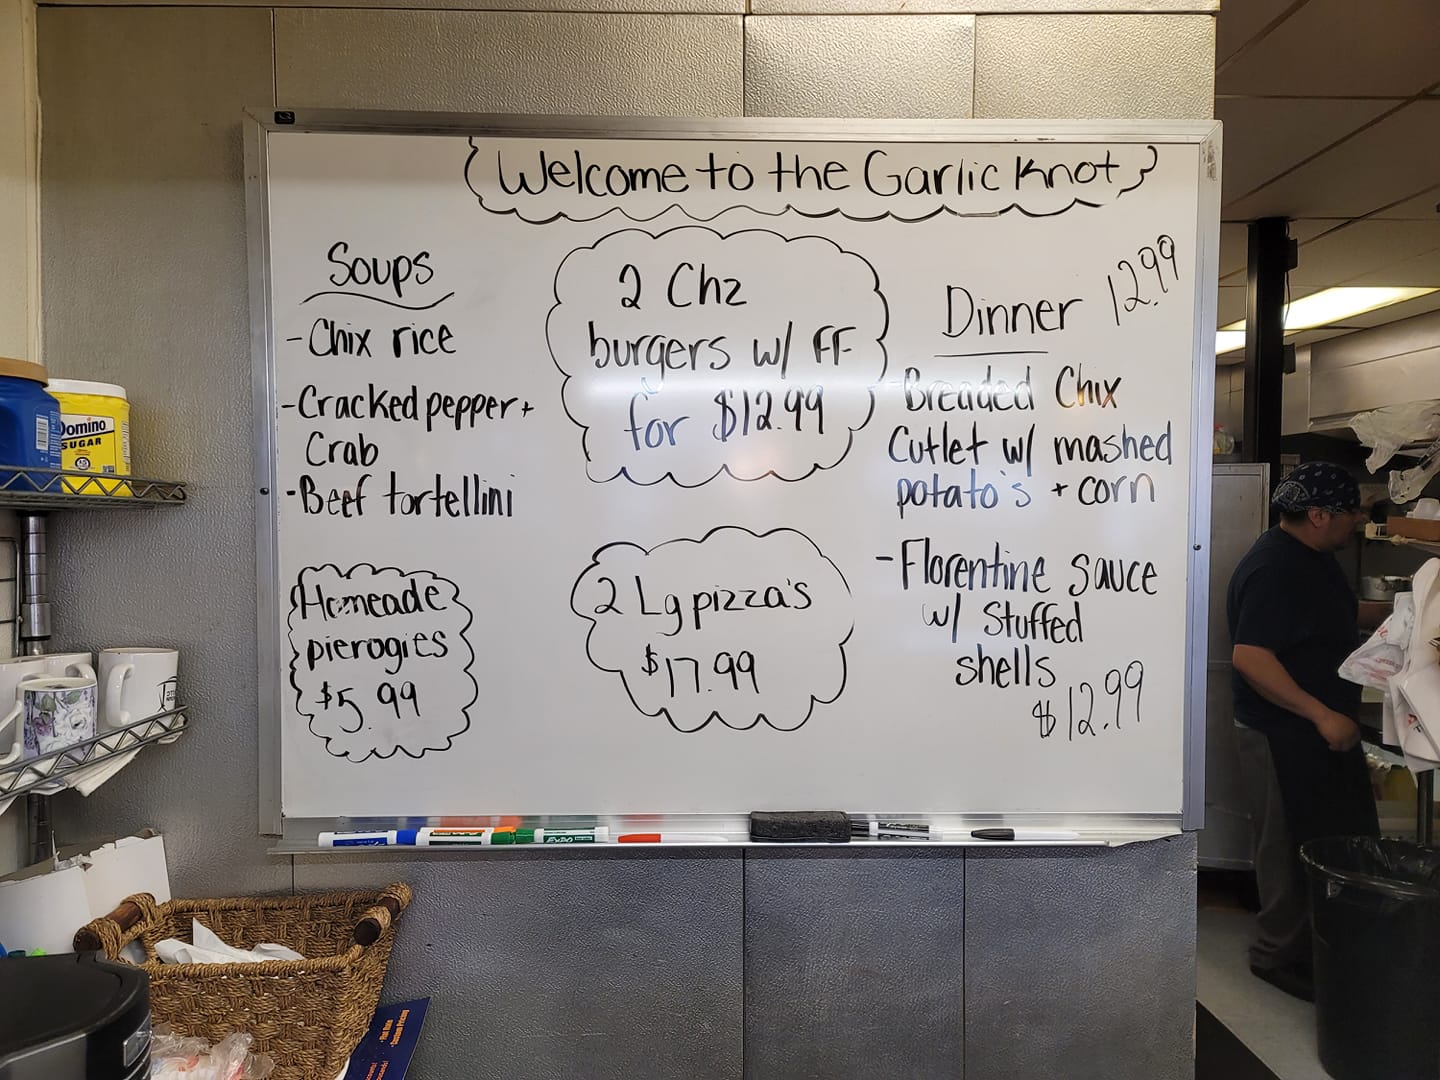 Welcome to the Garlic Knot
Soups
- Chix rice
- Cracked pepper +
Crab
- Beef tortellini
Homeade
pierogies
$5.99
2 Chz
burgers w/ FF
for $12.99
2 Lg pizza's
$17.99
Dinner 12.99
- Breaded Chix
Cutlet w/ mashed
potato's + corn
- Florentine sauce
w/ Stuffed
shells
$12.99
Domino
SUGAR
EXPO